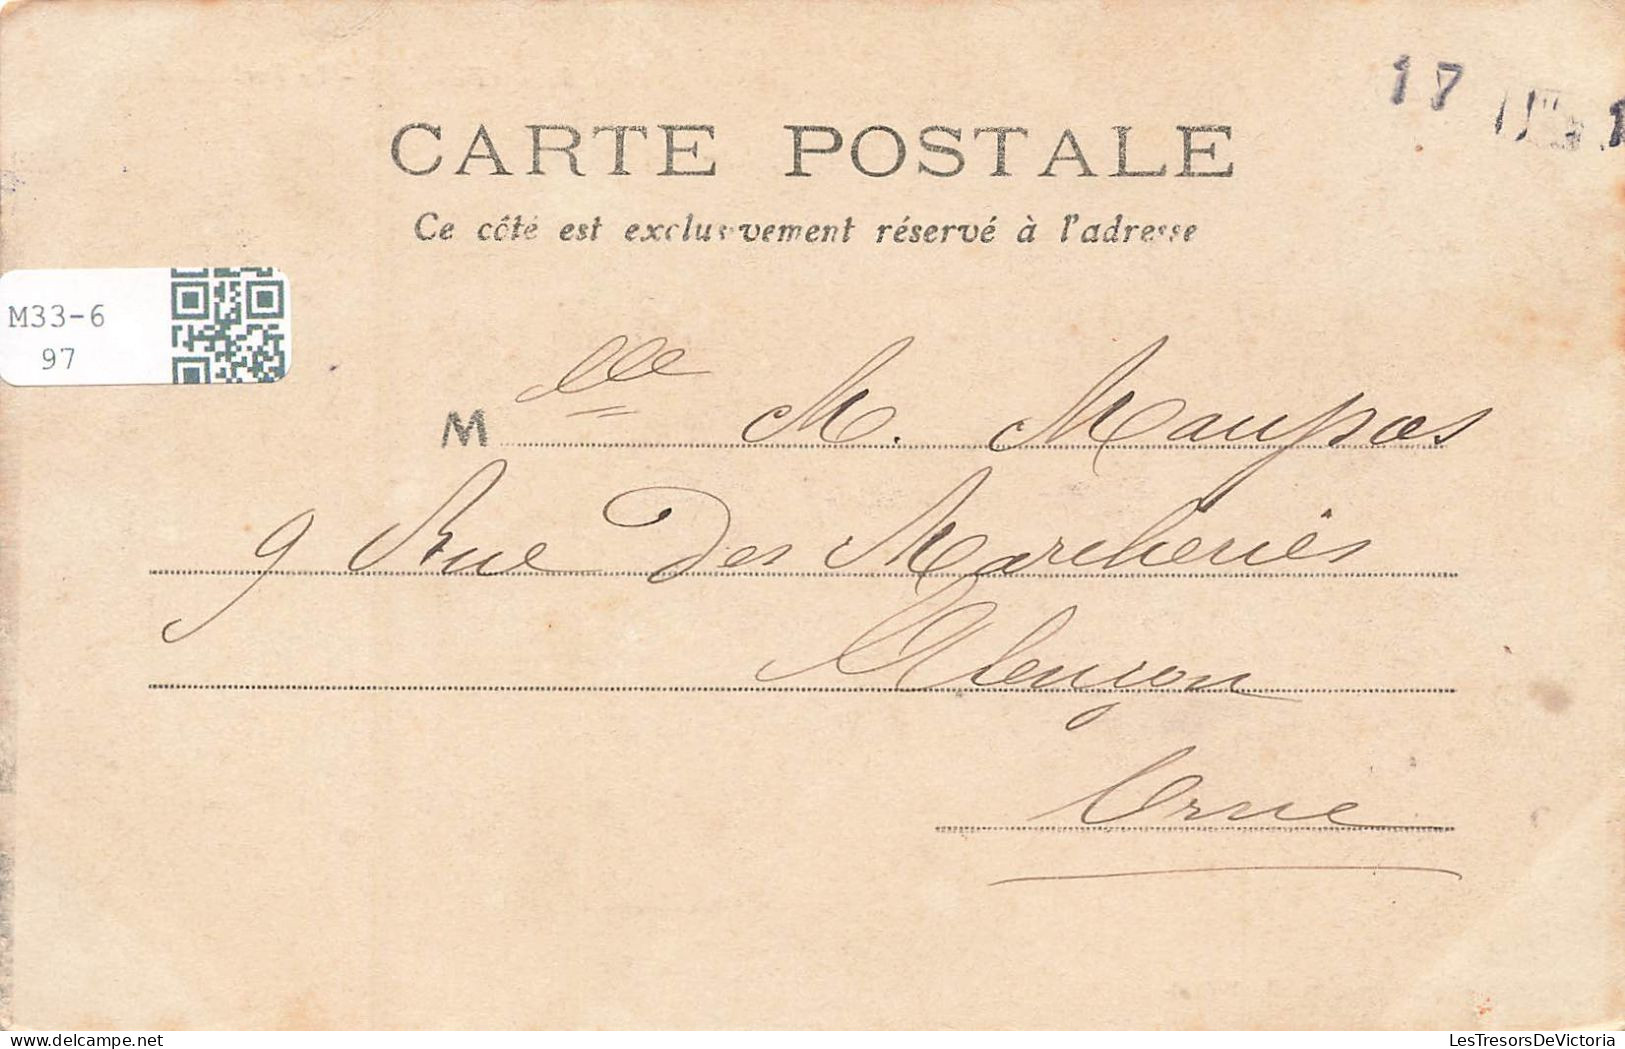 17
CARTE POSTALE
Ce côté est exclusivement réservé à l'adresse
M33-6
97
Mlle M. Maupas
9 Rue des Marcheries
Alençon
Orne
LesTresorsDeVictoria